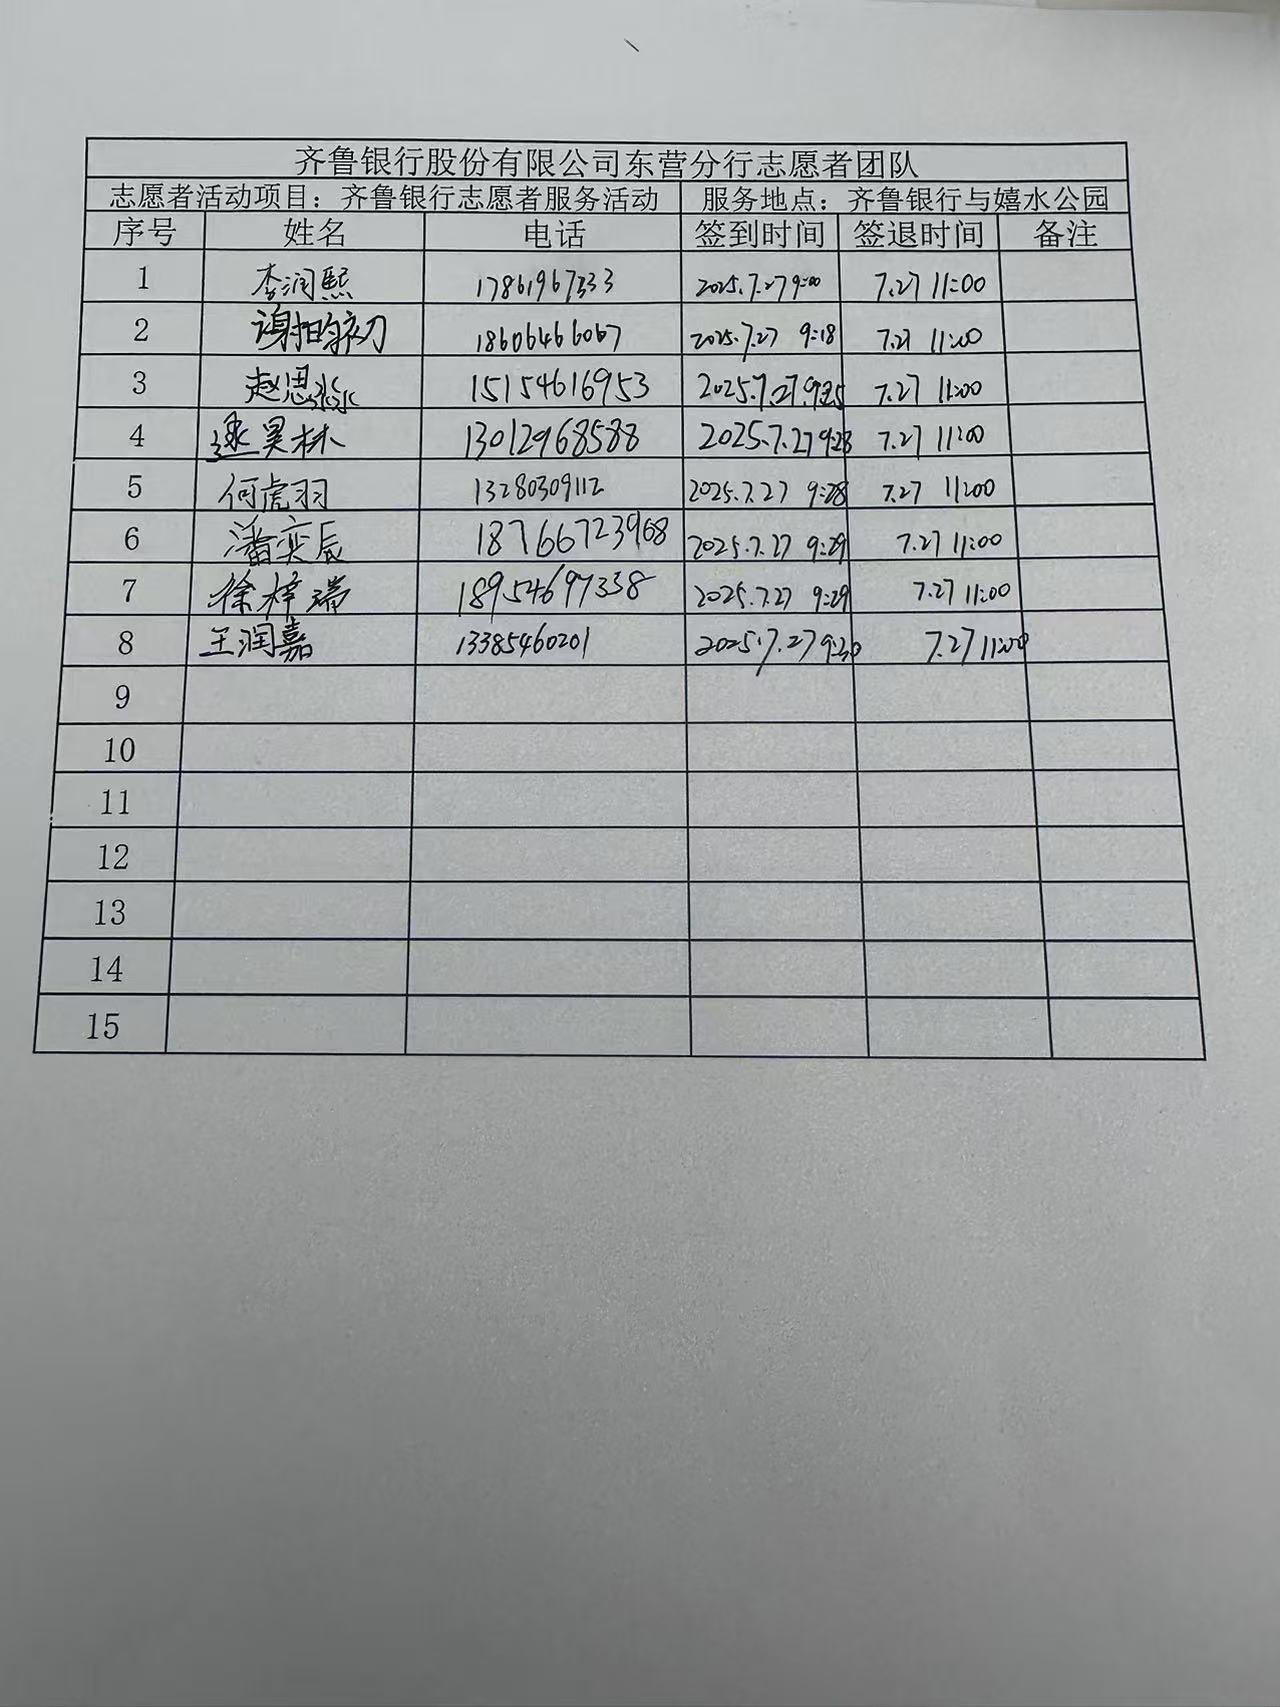 齐鲁银行股份有限公司东营分行志愿者团队
志愿者活动项目：齐鲁银行志愿者服务活动 服务地点：齐鲁银行与嬉水公园
序号 姓名 电话 签到时间 签退时间 备注
1 李润熙 17861967333 2025.7.27 9:00 7.27 11:00
2 18606466067 2025.7.27 9:18 7.27 11:00
3 赵思淼 15154616953 2025.7.27.9:25 7.27 11:00
4 逯昊林 13012968588 2025.7.27 9:28 7.27 11:00
5 何虎羽 13280309112 2025.7.27 9:28 7.27 11:00
6 潘奕辰 18766723968 2025.7.27 9:29 7.27 11:00
7 徐梓瑞 18954697338 2025.7.27 9:29 7.27 11:00
8 王润嘉 13385460201 2025.7.27 9:30 7.27 11:00
9
10
11
12
13
14
15